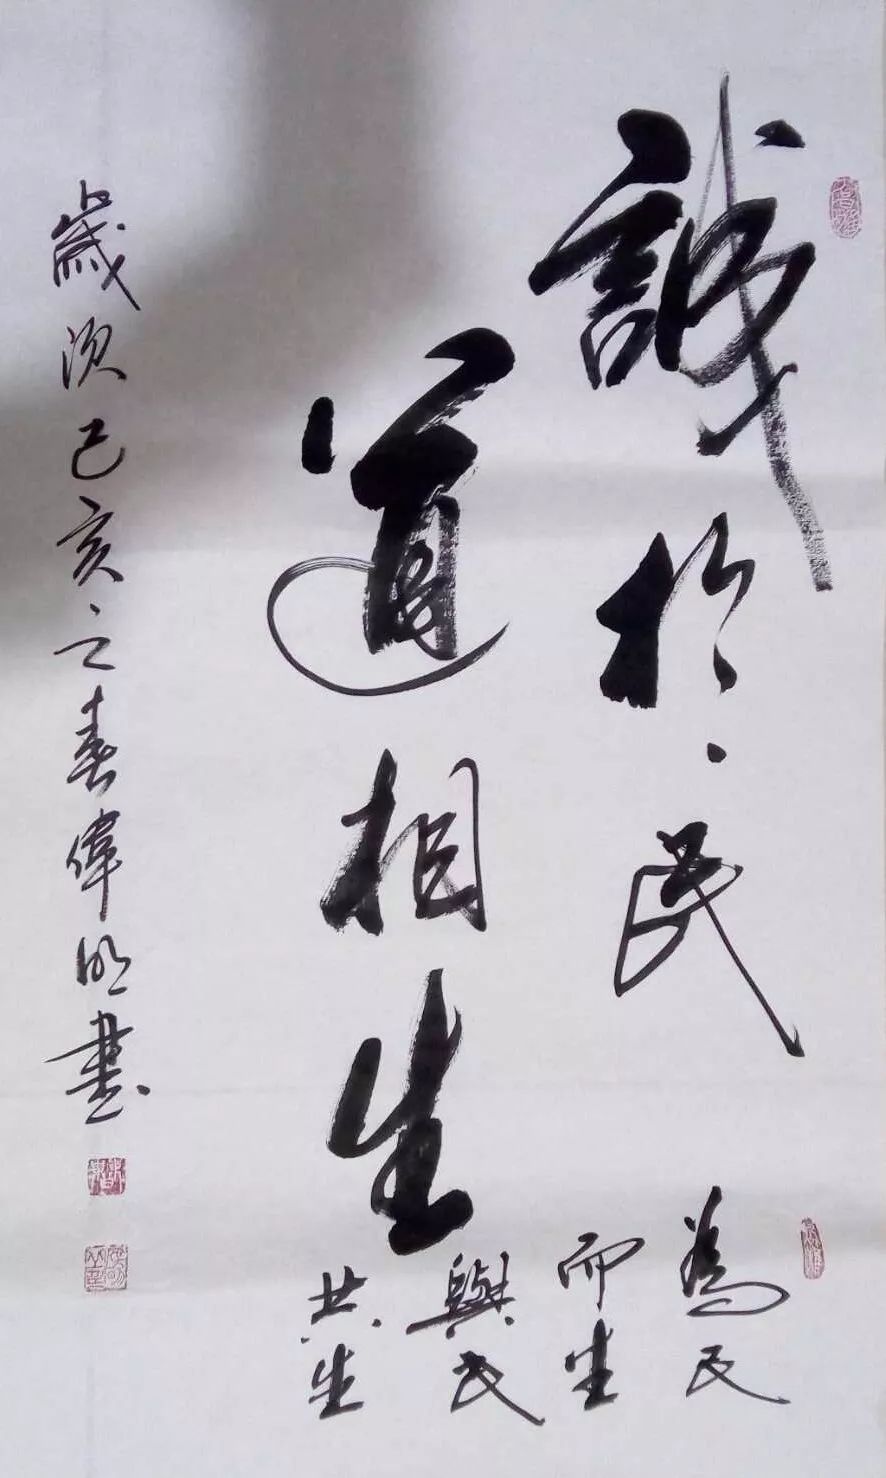 誠於民
道相生
為民
而生
與民
共生
歲次己亥之春偉明書